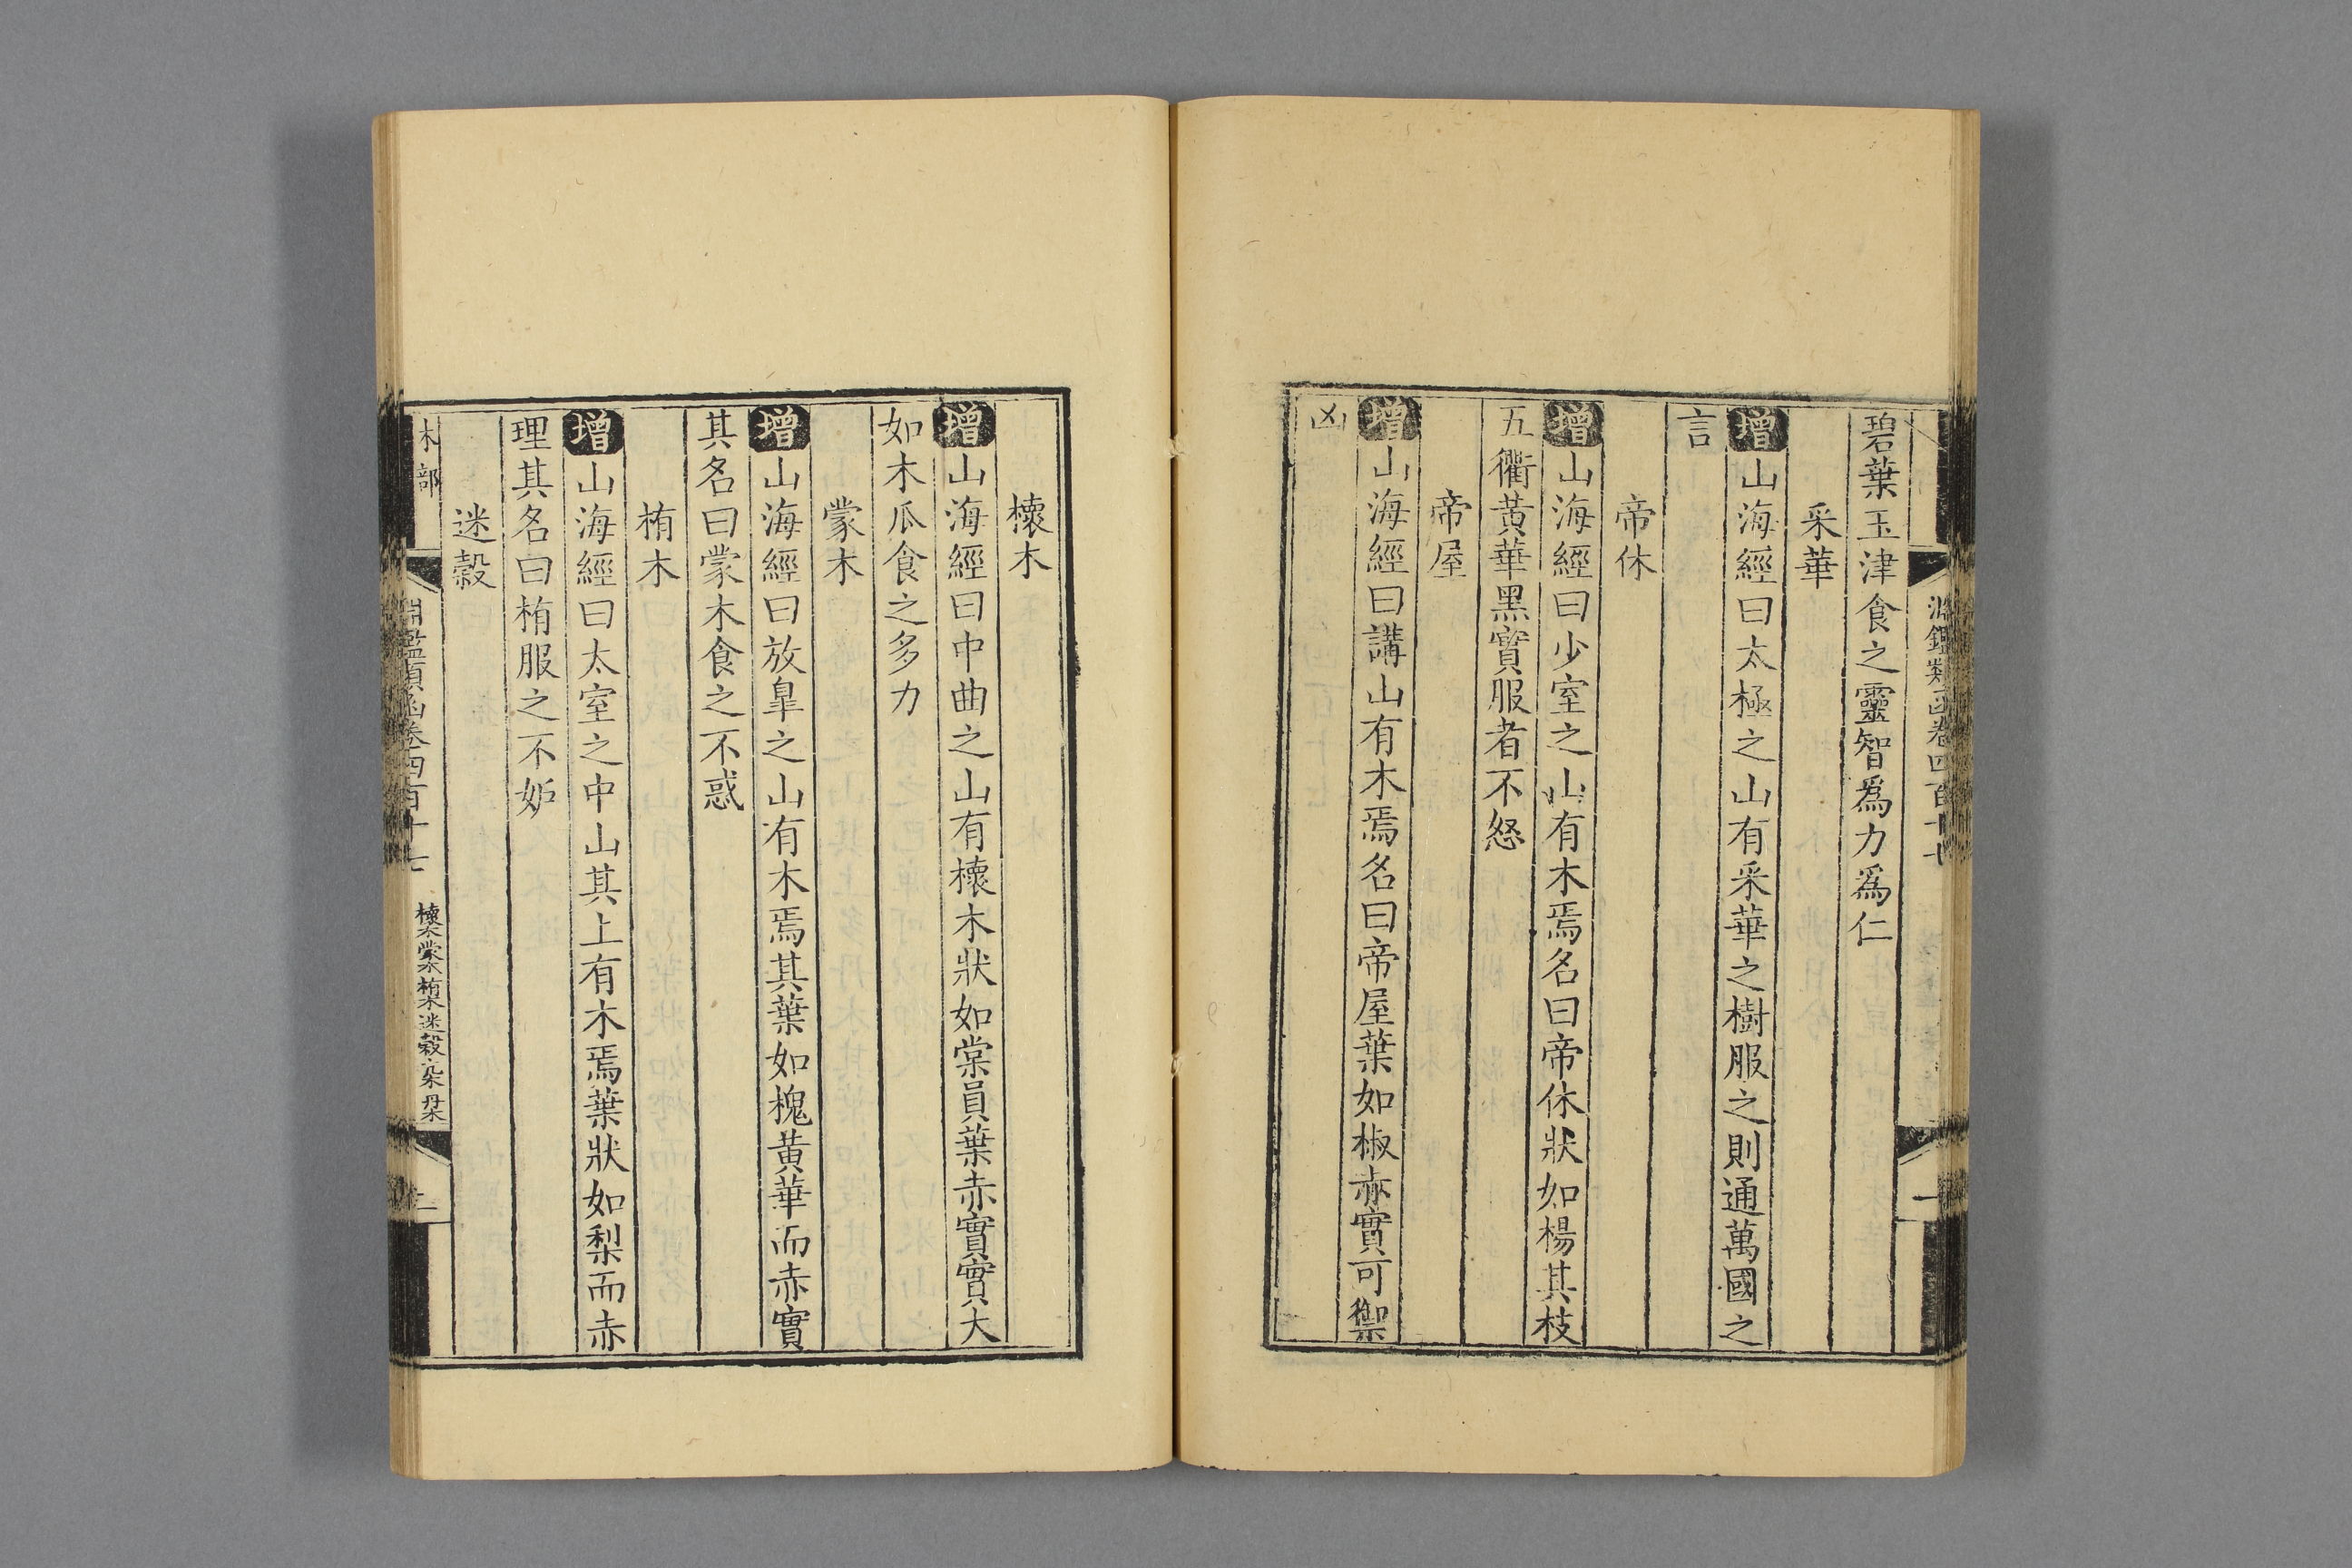 淵鑑類函卷四百十七
一
碧葉玉津食之靈智爲力爲仁
采華
增山海經曰太極之山有采華之樹服之則通萬國之
言
帝休
增山海經曰少室之山有木焉名曰帝休狀如楊其枝
五衢黃華黑實服者不怒
帝屋
增山海經曰講山有木焉名曰帝屋葉如椒赤實可禦
凶
櫰木
增山海經曰中曲之山有櫰木狀如棠員葉赤實實大
如木瓜食之多力
蒙木
增山海經曰放皐之山有木焉其葉如槐黃華而赤實
其名曰蒙木食之不惑
栯木
增山海經曰太室之中山其上有木焉葉狀如梨而赤
理其名曰栯服之不妒
迷榖
木部
淵鑑類函卷四百十七
櫰木 蒙木 栯木 迷榖 丹木
二